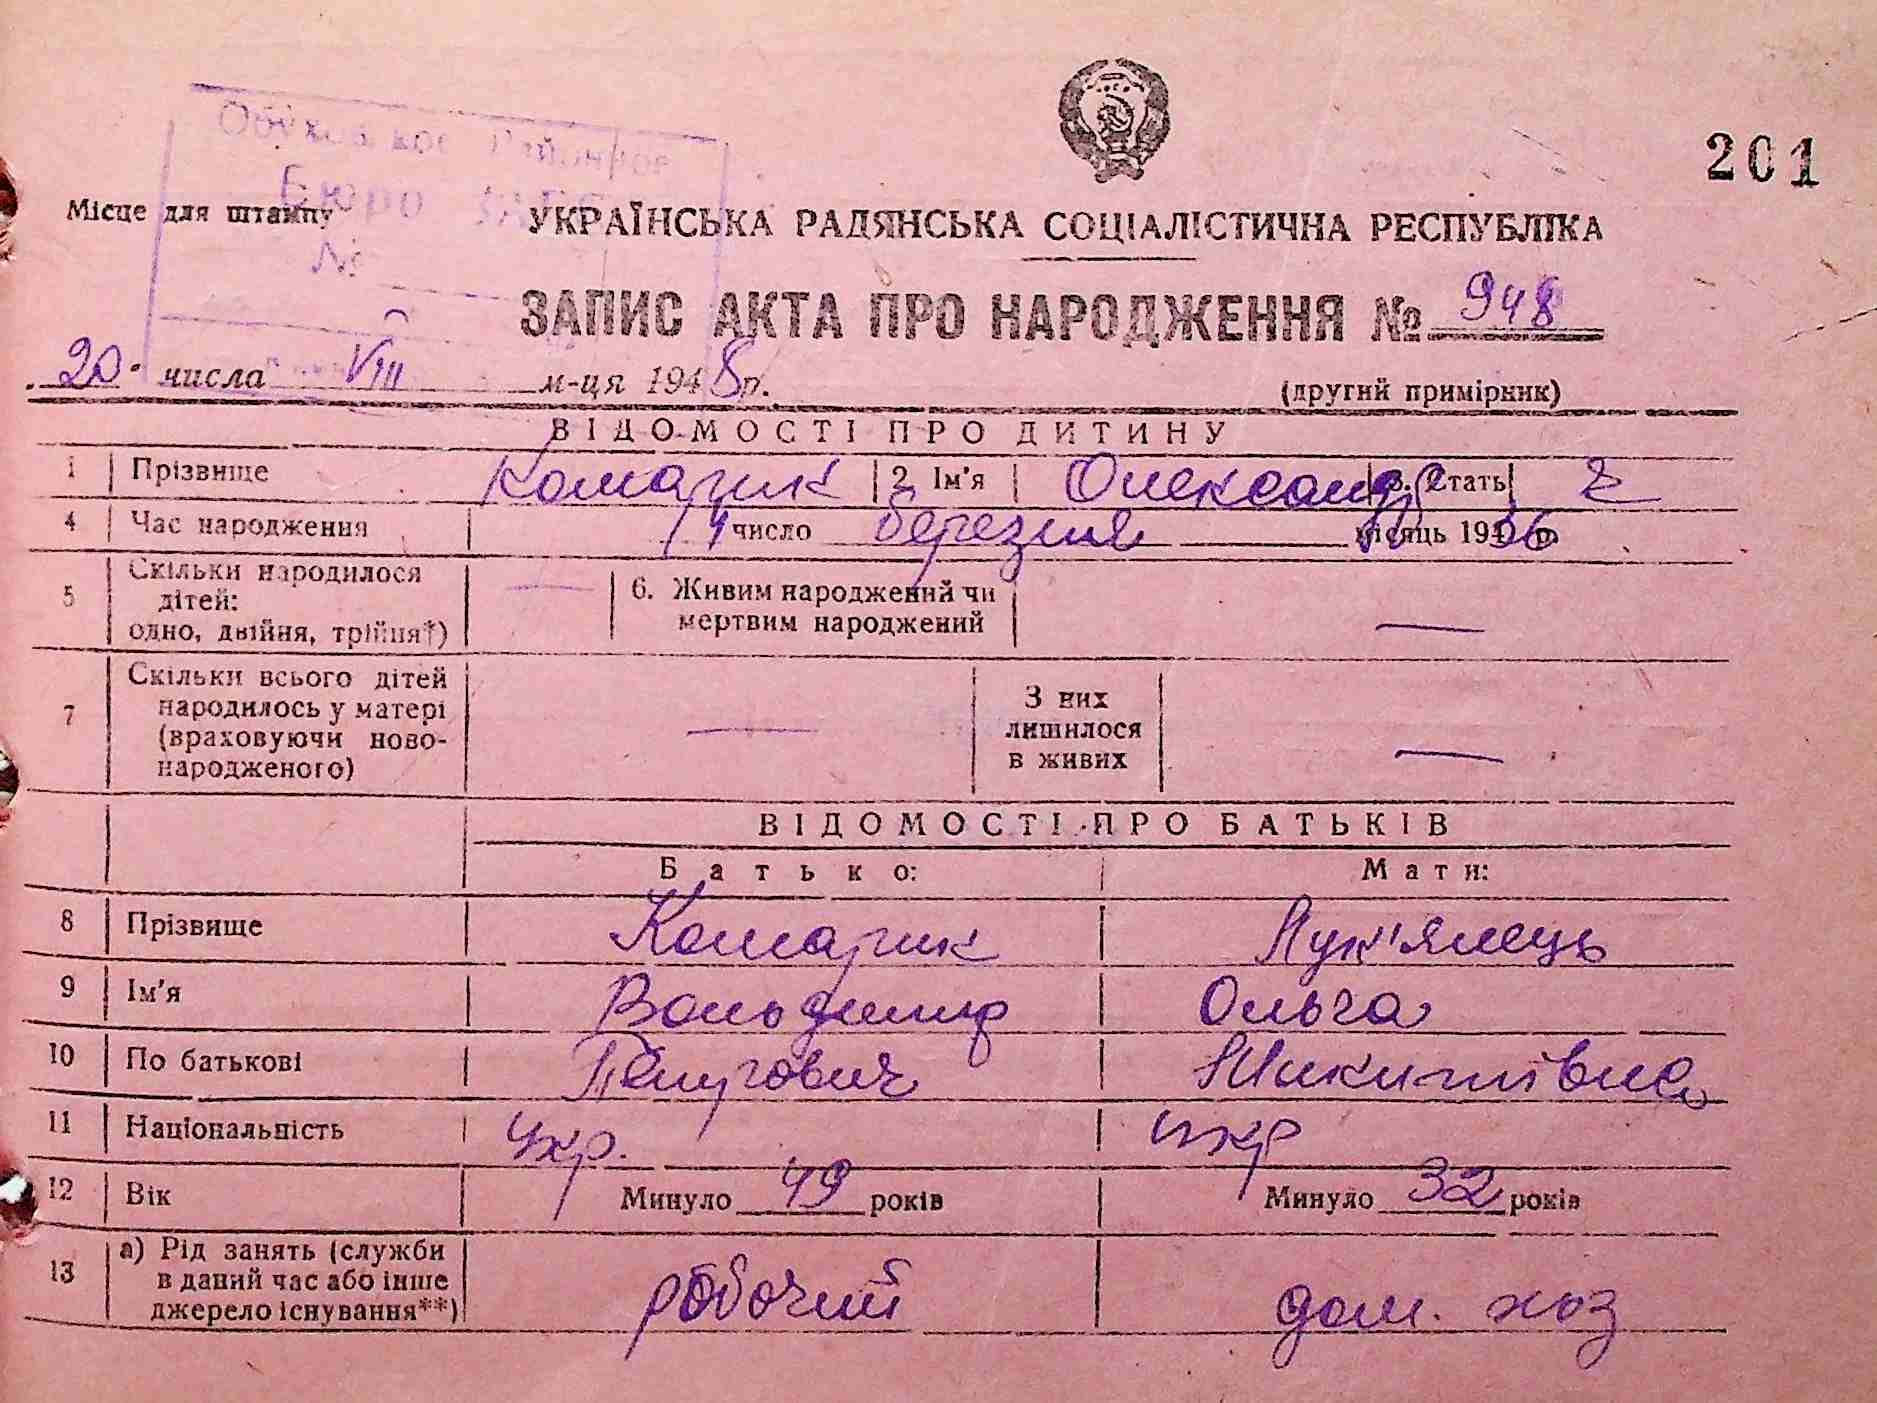 201
Бюро ЗАГС
Місце для штампу
№
УКРАЇНСЬКА РАДЯНСЬКА СОЦІАЛІСТИЧНА РЕСПУБЛІКА
ЗАПИС АКТА ПРО НАРОДЖЕННЯ № 948
20 числа VIII м-ця 1948 р.
(другий примірник)
ВІДОМОСТІ ПРО ДИТИНУ
1 Прізвище Комарик 2. Ім'я Олександр 3. Стать Ч
4 Час народження 14 число березня місяць 1936 р.
5 Скільки народилося дітей: одно, двійня, трійня*) — 6. Живим народжений чи мертвим народжений —
7 Скільки всього дітей народилось у матері (враховуючи ново-народженого) — З них лишилося в живих —
ВІДОМОСТІ ПРО БАТЬКІВ
Батько: Мати:
8 Прізвище Комарик Лук'янець
9 Ім'я Вольдимир Ольга
10 По батькові Петрович Микитівна
11 Національність Укр. укр
12 Вік Минуло 49 років Минуло 32 років
13 а) Рід занять (служби в даний час або інше джерело існування**) робочий дом. хоз